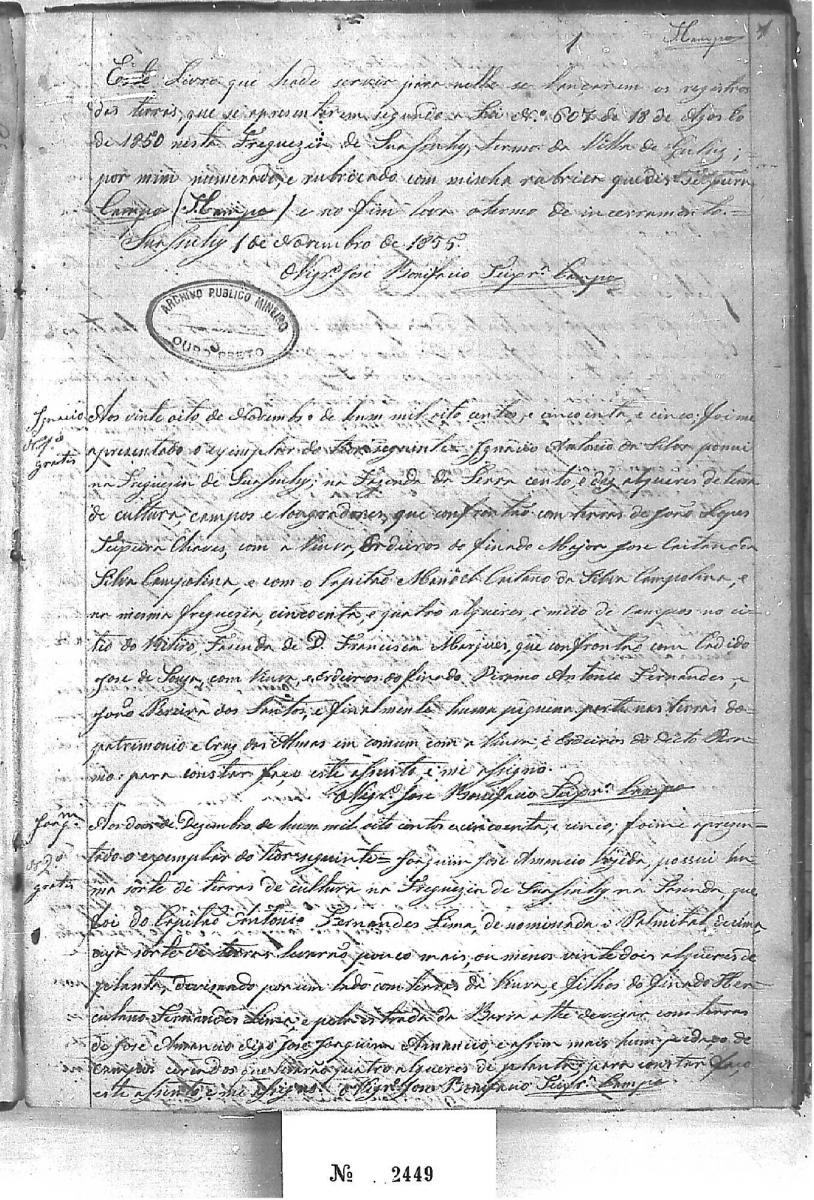 1
TCampo
Este Livro que hade servir para nelle se lançarem os registros
das terras, que se apresentarem segundo a Lei N.º 607 de 18 de Agosto
de 1850 nesta Freguezia de Suassuhy, termo da Villa de
por mim numerado, e rubricado com minha rubrica que diz
Campo (TCampo) e no fim leva o termo de incerramento. =
Suassuhy 1 de Novembro de 1855.
O Vigr.º José Bonifacio Teixr.ª Campo
ARCHIVO PUBLICO MINEIRO
OURO PRETO
Ignacio
gratis
Aos vinte oito de Novembro de hum mil oito centos, e cincoenta, e cinco: foi me
apresentado o exemplar do theor seguinte = Ignacio Antonio da Silva possui
na Freguezia de Suassuhy, na Fazenda da Serra cento, e dez alqueres de terra
de cultura, campos e que confrontão com terras de João Lopes
Teixeira Chaves, com a Viuva, Erdeiros do finado Major Jose Caitano da
Silva Campolina, e com o Capitão Manoel Caitano da Silva Campolina, e
na mesma freguezia, cincoenta, e quatro alqueres, e meio de Campos no ci-
tio do Retiro, Fazenda de D. Francisca Marques, que confrontão com Cadido
Jose de Souza, com Viuva, e Erdeiros do finado Antonio Fernandes, e
João Pereira dos Santos, e finalmente huma piquena parte nas terras do
patrimonio e Cruz das Almas em comum com a Viuva, e Erdeiros do dito
: para constar faço este assento, e me assigno.
O Vigr.º José Bonifacio Teixr.ª Campo
gratis
Aos dois de Dezembro de hum mil oito centos e cincoenta, e cinco, foi me apresen-
tado o exemplar do theor seguinte = Joaquim José Amancio possui hu-
ma sorte de terras de cultura na Freguezia de Suassuhy na Fazenda, que
foi do Capitão Antonio Fernandes Lima, de nominada Palmital
cuja sorte de terras levarão pouco mais, ou menos vinte dois alqueres de
planta, devisando por um lado com terras da Viuva, e filhos do finado Her-
culano Fernandes Lima, e pela estrada da Barra athe devizar com terras
de José Amancio digo José Joaquim Amancio, e assim mais hum pedaço de
campos que levarão quatro alqueres de planta, para constar faço
este assento, e me assigno. O Vigr.º José Bonifacio Teixr.ª Campo
Nº 2449